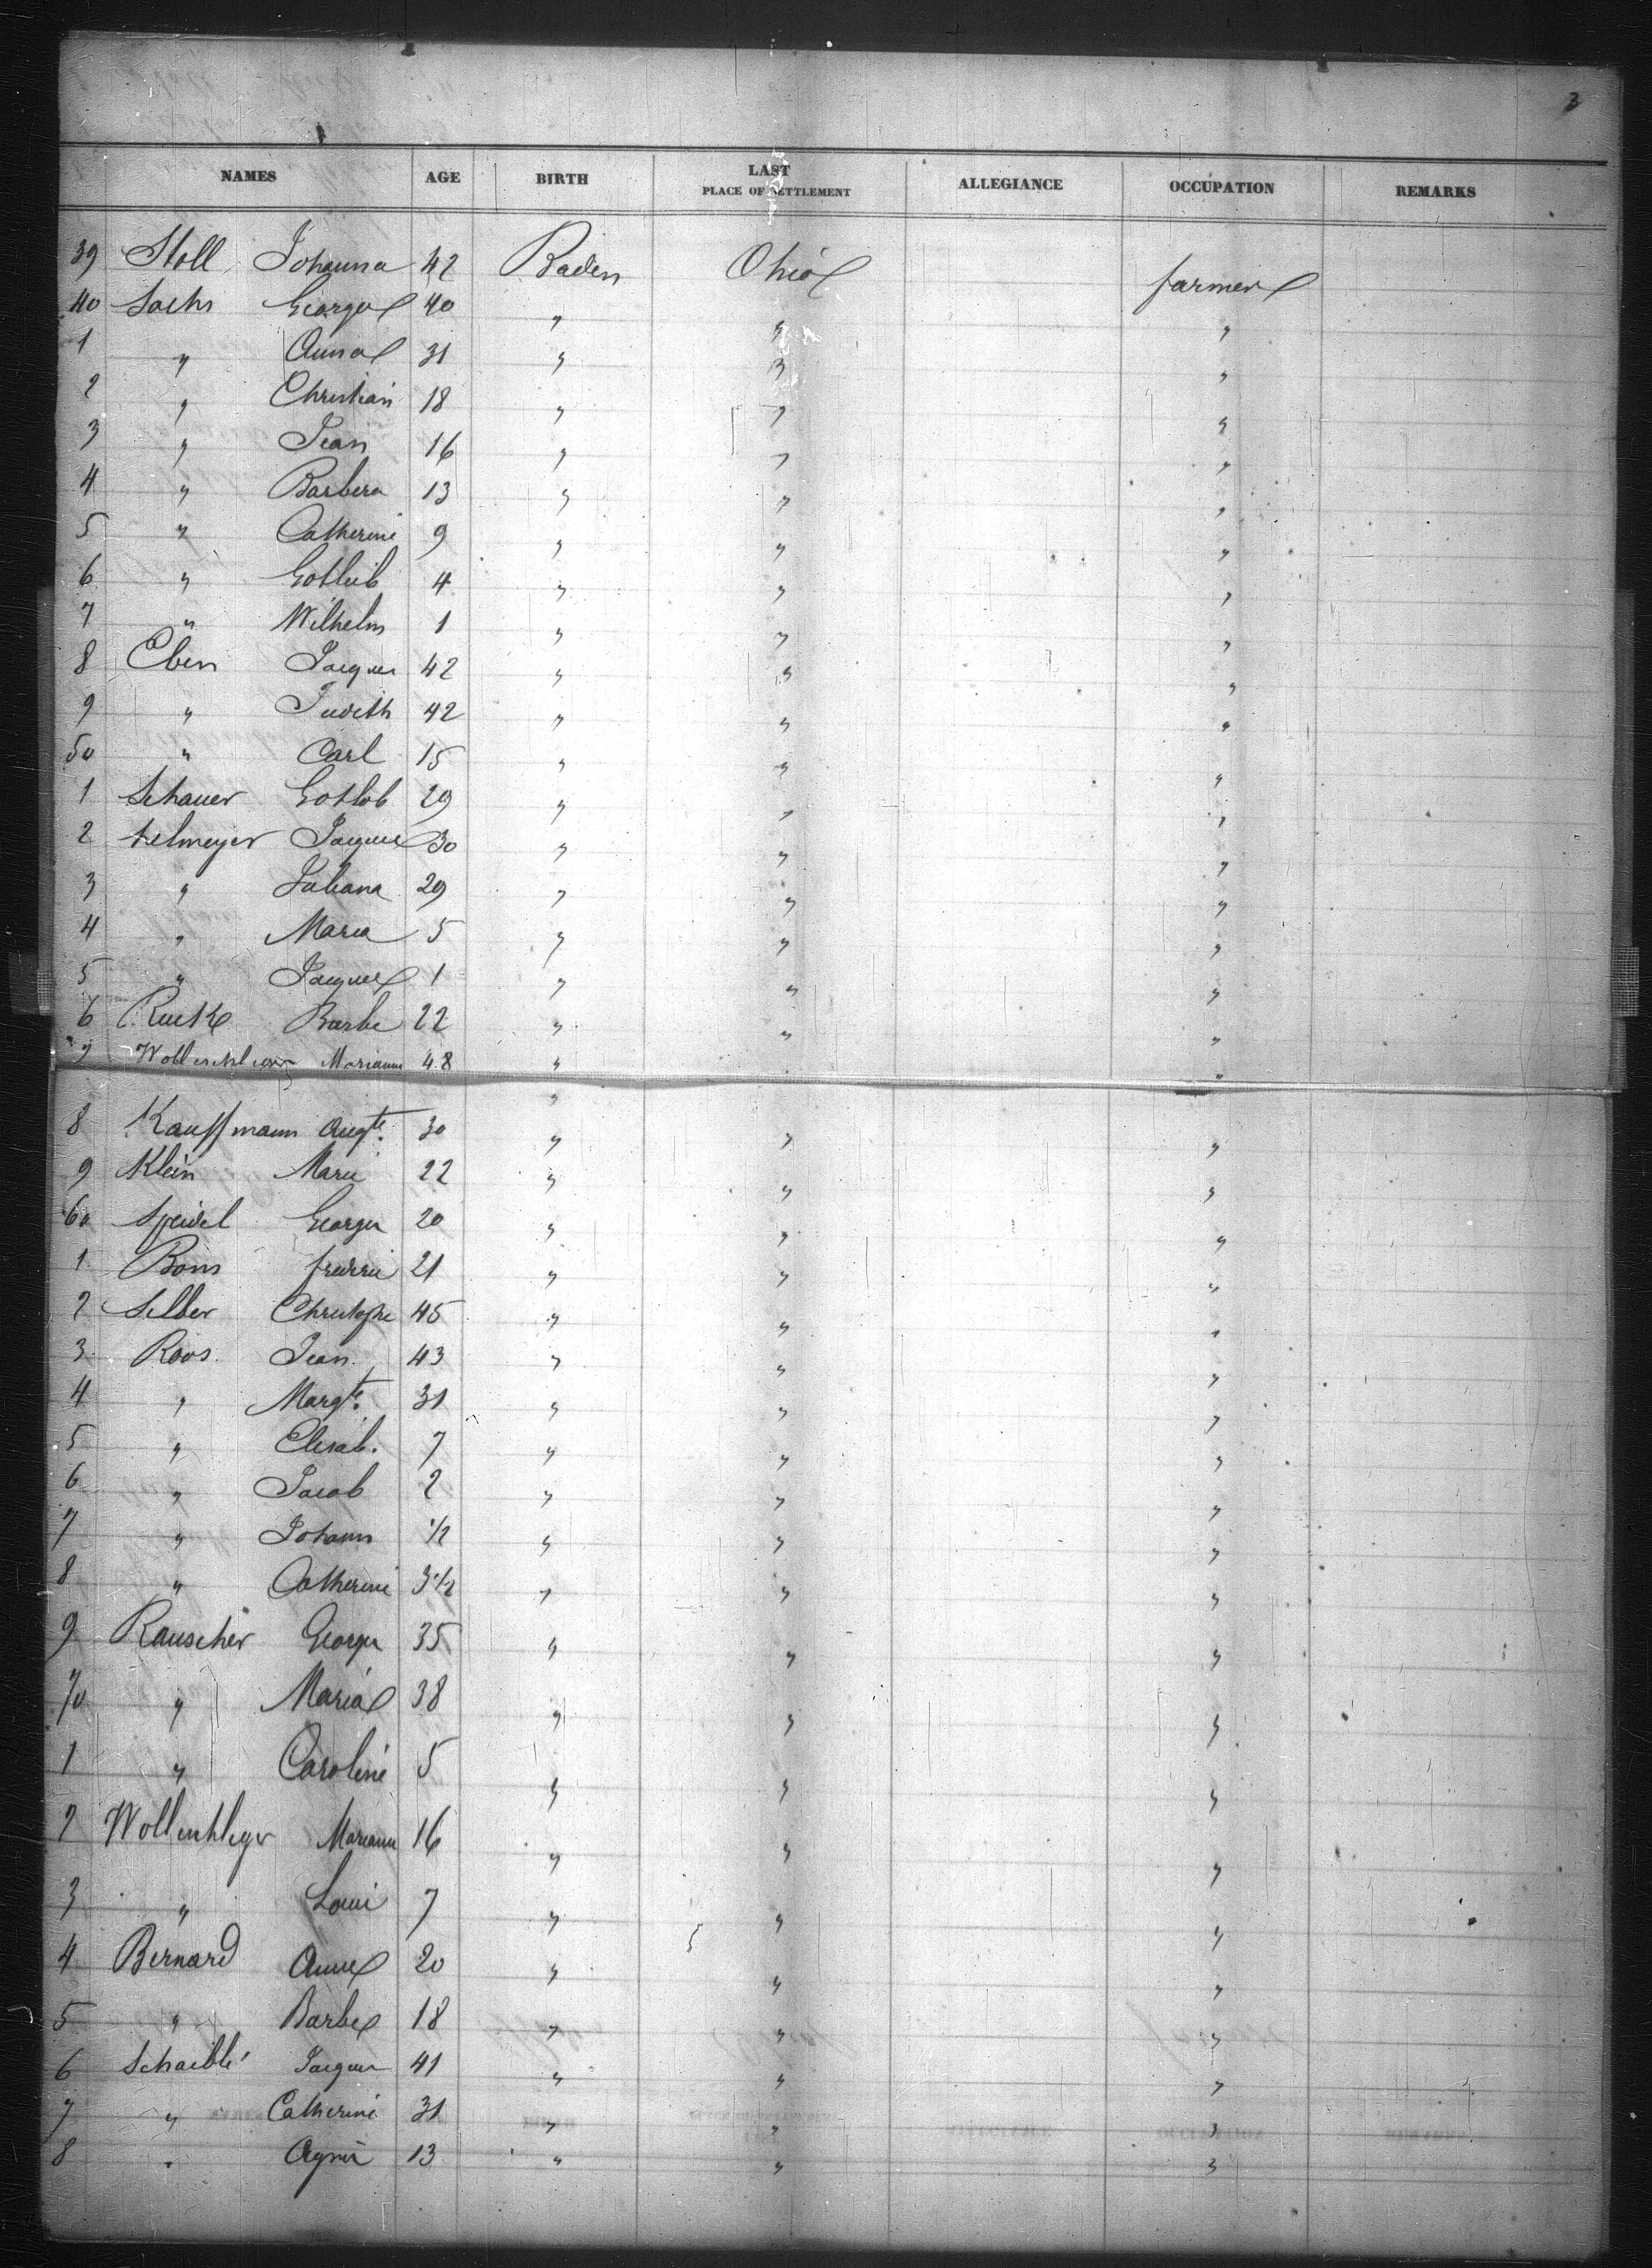 3
NAMES AGE BIRTH LAST PLACE OF SETTLEMENT ALLEGIANCE OCCUPATION REMARKS
39 Stoll Johanna 42 Baden Ohio farmer
40 Sachs George 40 " " "
1 " Anna 31 " " "
2 " Christian 18 " " "
3 " Jean 16 " " "
4 " Barbera 13 " " "
5 " Catherine 9 " " "
6 " Gotlieb 4 " " "
7 " Wilhelm 1 " " "
8 Eben Jacques 42 " " "
9 " Judith 42 " " "
50 " Carl 15 " " "
1 Schauer Gotlob 29 " " "
2 Jacques 30 " " "
3 " Juliana 29 " " "
4 " Maria 5 " " "
5 " Jacques 1 " " "
6 Barbe 22 " " "
7 Mariann 48 " "
8 Kauffmann Augte. 30 " " "
9 Klein Marie 22 " " "
60 Speidel George 20 " " "
1 Frederic 21 " " "
2 Silber Christophe 45 " " "
3 Roos Jean 43 " " "
4 " Margte. 31 " " "
5 " Elisab. 7 " " "
6 " Jacob 2 " " "
7 " Johann 1/2 " " "
8 " Catherine 3 1/2 " " "
9 Rauscher George 35 " " "
70 " Maria 38 " " "
1 " Caroline 5 " " "
2 Wollenschleger Mariann 16 " " "
3 " Louis 7 " " "
4 Bernard Anne 20 " " "
5 " Barbe 18 " " "
6 Schaiblé Jacques 41 " " "
7 " Catherine 31 " " "
8 " Agnes 13 " " "